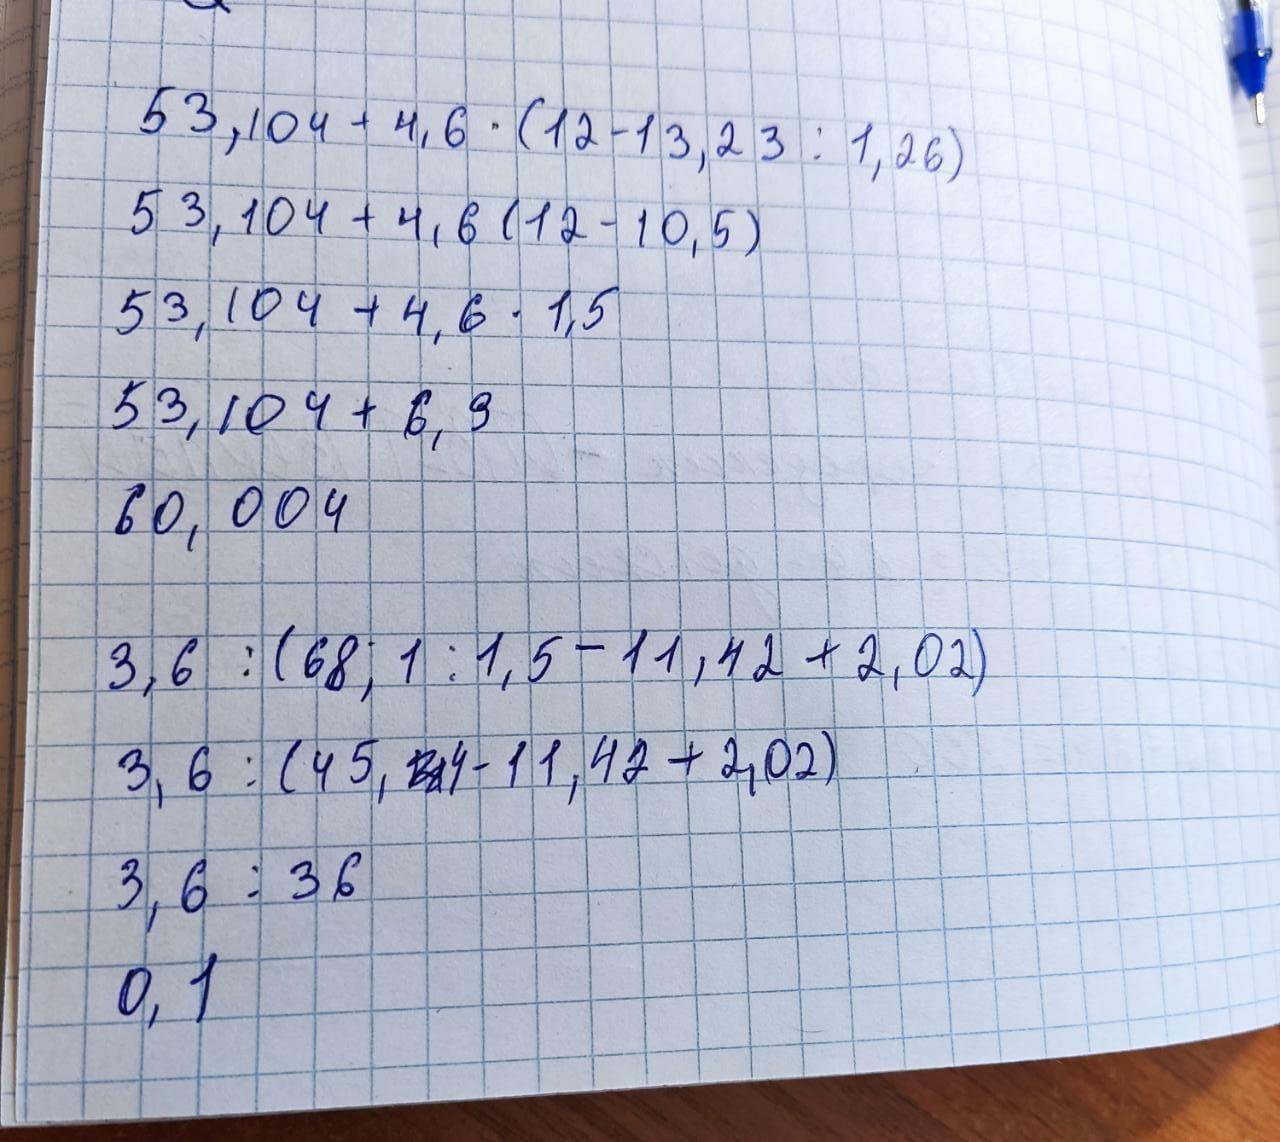 53,104 + 4,6 · (12 - 13,23 : 1,26)
53,104 + 4,6 (12 - 10,5)
53,104 + 4,6 · 1,5
53,104 + 6,9
60,004
3,6 : (68,1 : 1,5 - 11,42 + 2,02)
3,6 : (45,4 - 11,42 + 2,02)
3,6 : 36
0,1